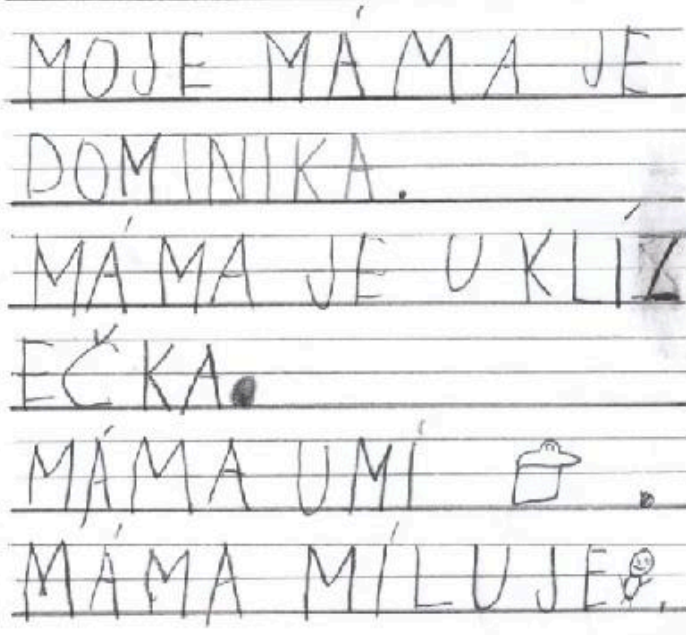 MOJE MÁMA JE
DOMINIKA.
MÁMA JE U KLÍZ
EČKA.
MÁMA UMÍ .
MÁMA MÍLUJE .